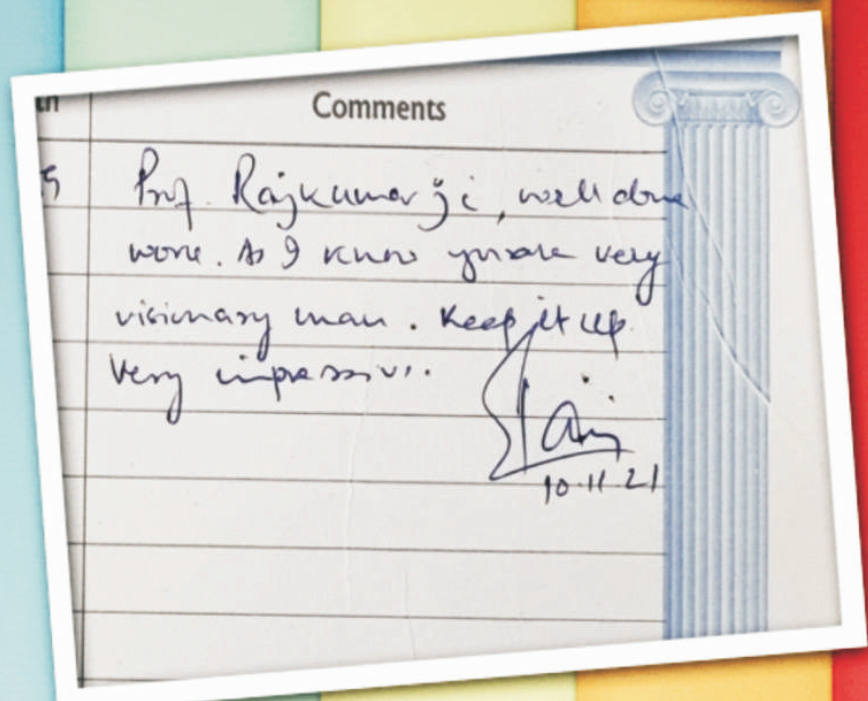 Comments
Prof. Rajkumar ji, well done
work. As I know you are very
visionary man. Keep it up
Very impressive.
10.11.21